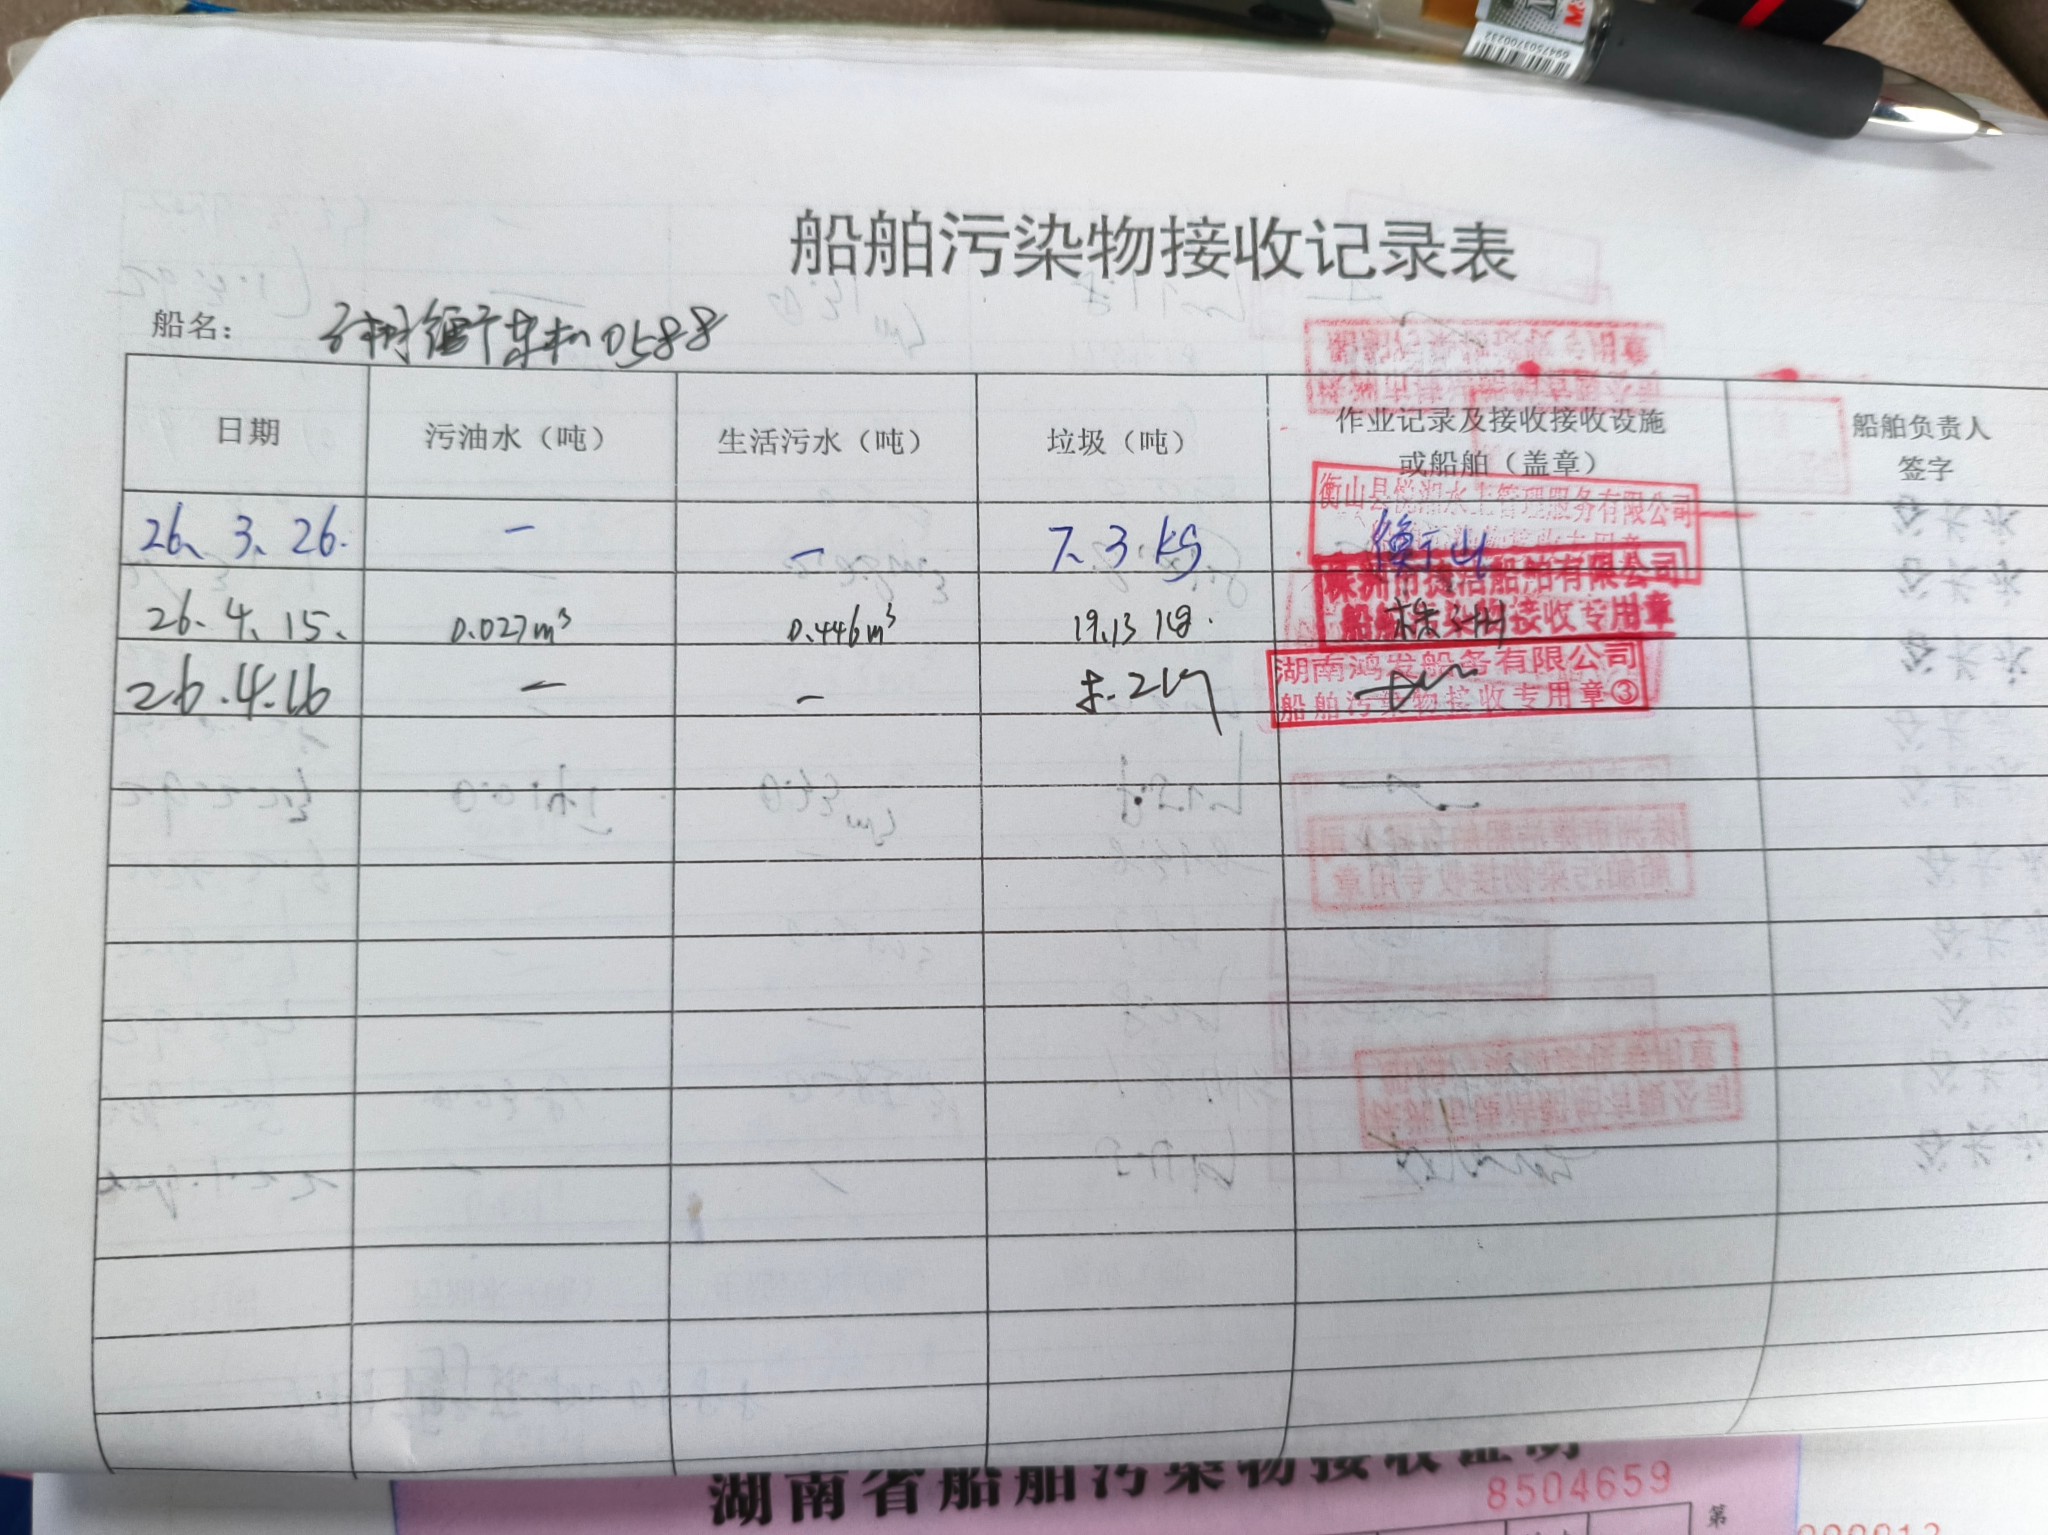 6947503700232
船舶污染物接收记录表
船名：
机0588
日期 污油水（吨） 生活污水（吨） 垃圾（吨） 作业记录及接收接收设施 船舶负责人
或船舶（盖章） 签字
衡山县悦湘水上管理服务有限公司
26、3、26. — — 7、3 kg 衡山
株洲市捷洁船舶有限公司
26.4、15、 0.027m³ 0.446m³ 19.13 kg. 株洲
船舶污染物接收专用章
湖南鸿发船务有限公司
26.4.16 — —
船舶污染物接收专用章③
湖南省船舶污染物接收证明
8504659
第